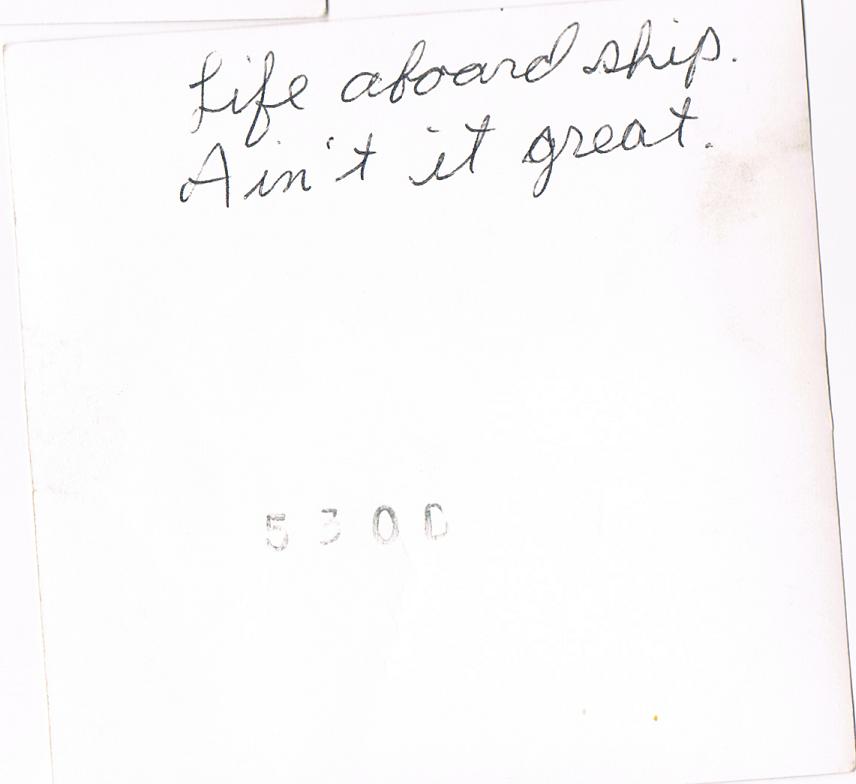 Life aboard ship.
Ain't it great.
530D